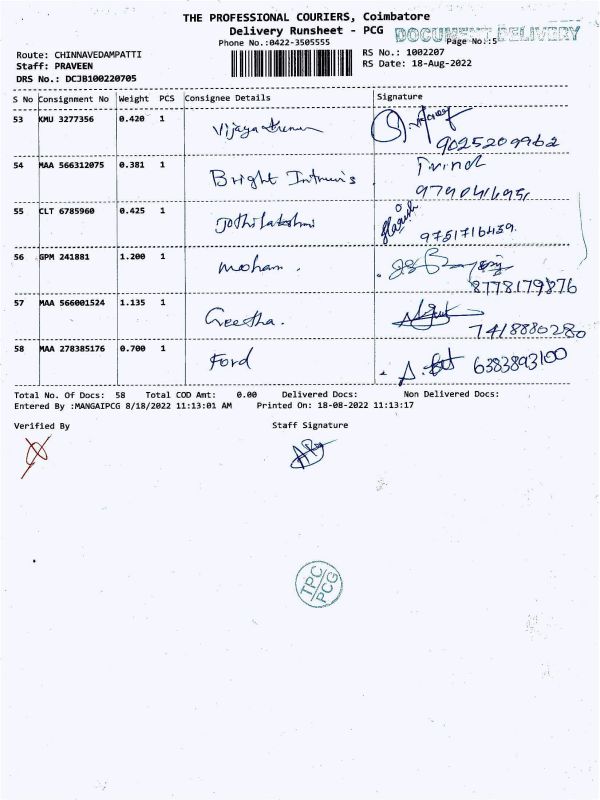 THE PROFESSIONAL COURIERS, Coimbatore
Delivery Runsheet - PCG
DOCUMENT DELIVERY
Phone No.:0422-3505555
Page No.:5
Route: CHINNAVEDAMPATTI
RS No.: 1002207
Staff: PRAVEEN
RS Date: 18-Aug-2022
DRS No.: DCJB100220705
S No Consignment No Weight PCS Consignee Details Signature
53 KMU 3277356 0.420 1
9025209962
54 MAA 566312075 0.381 1 Bright
55 CLT 6785960 0.425 1 Jothilakshmi
9751716459
56 GPM 241881 1.200 1 mohan .
8778179876
57 MAA 566001524 1.135 1 Geetha.
7418880280
58 MAA 278385176 0.700 1 Ford 6383893100
Total No. Of Docs: 58 Total COD Amt: 0.00 Delivered Docs: Non Delivered Docs:
Entered By :MANGAIPCG 8/18/2022 11:13:01 AM Printed On: 18-08-2022 11:13:17
Verified By Staff Signature
TPC
PCG